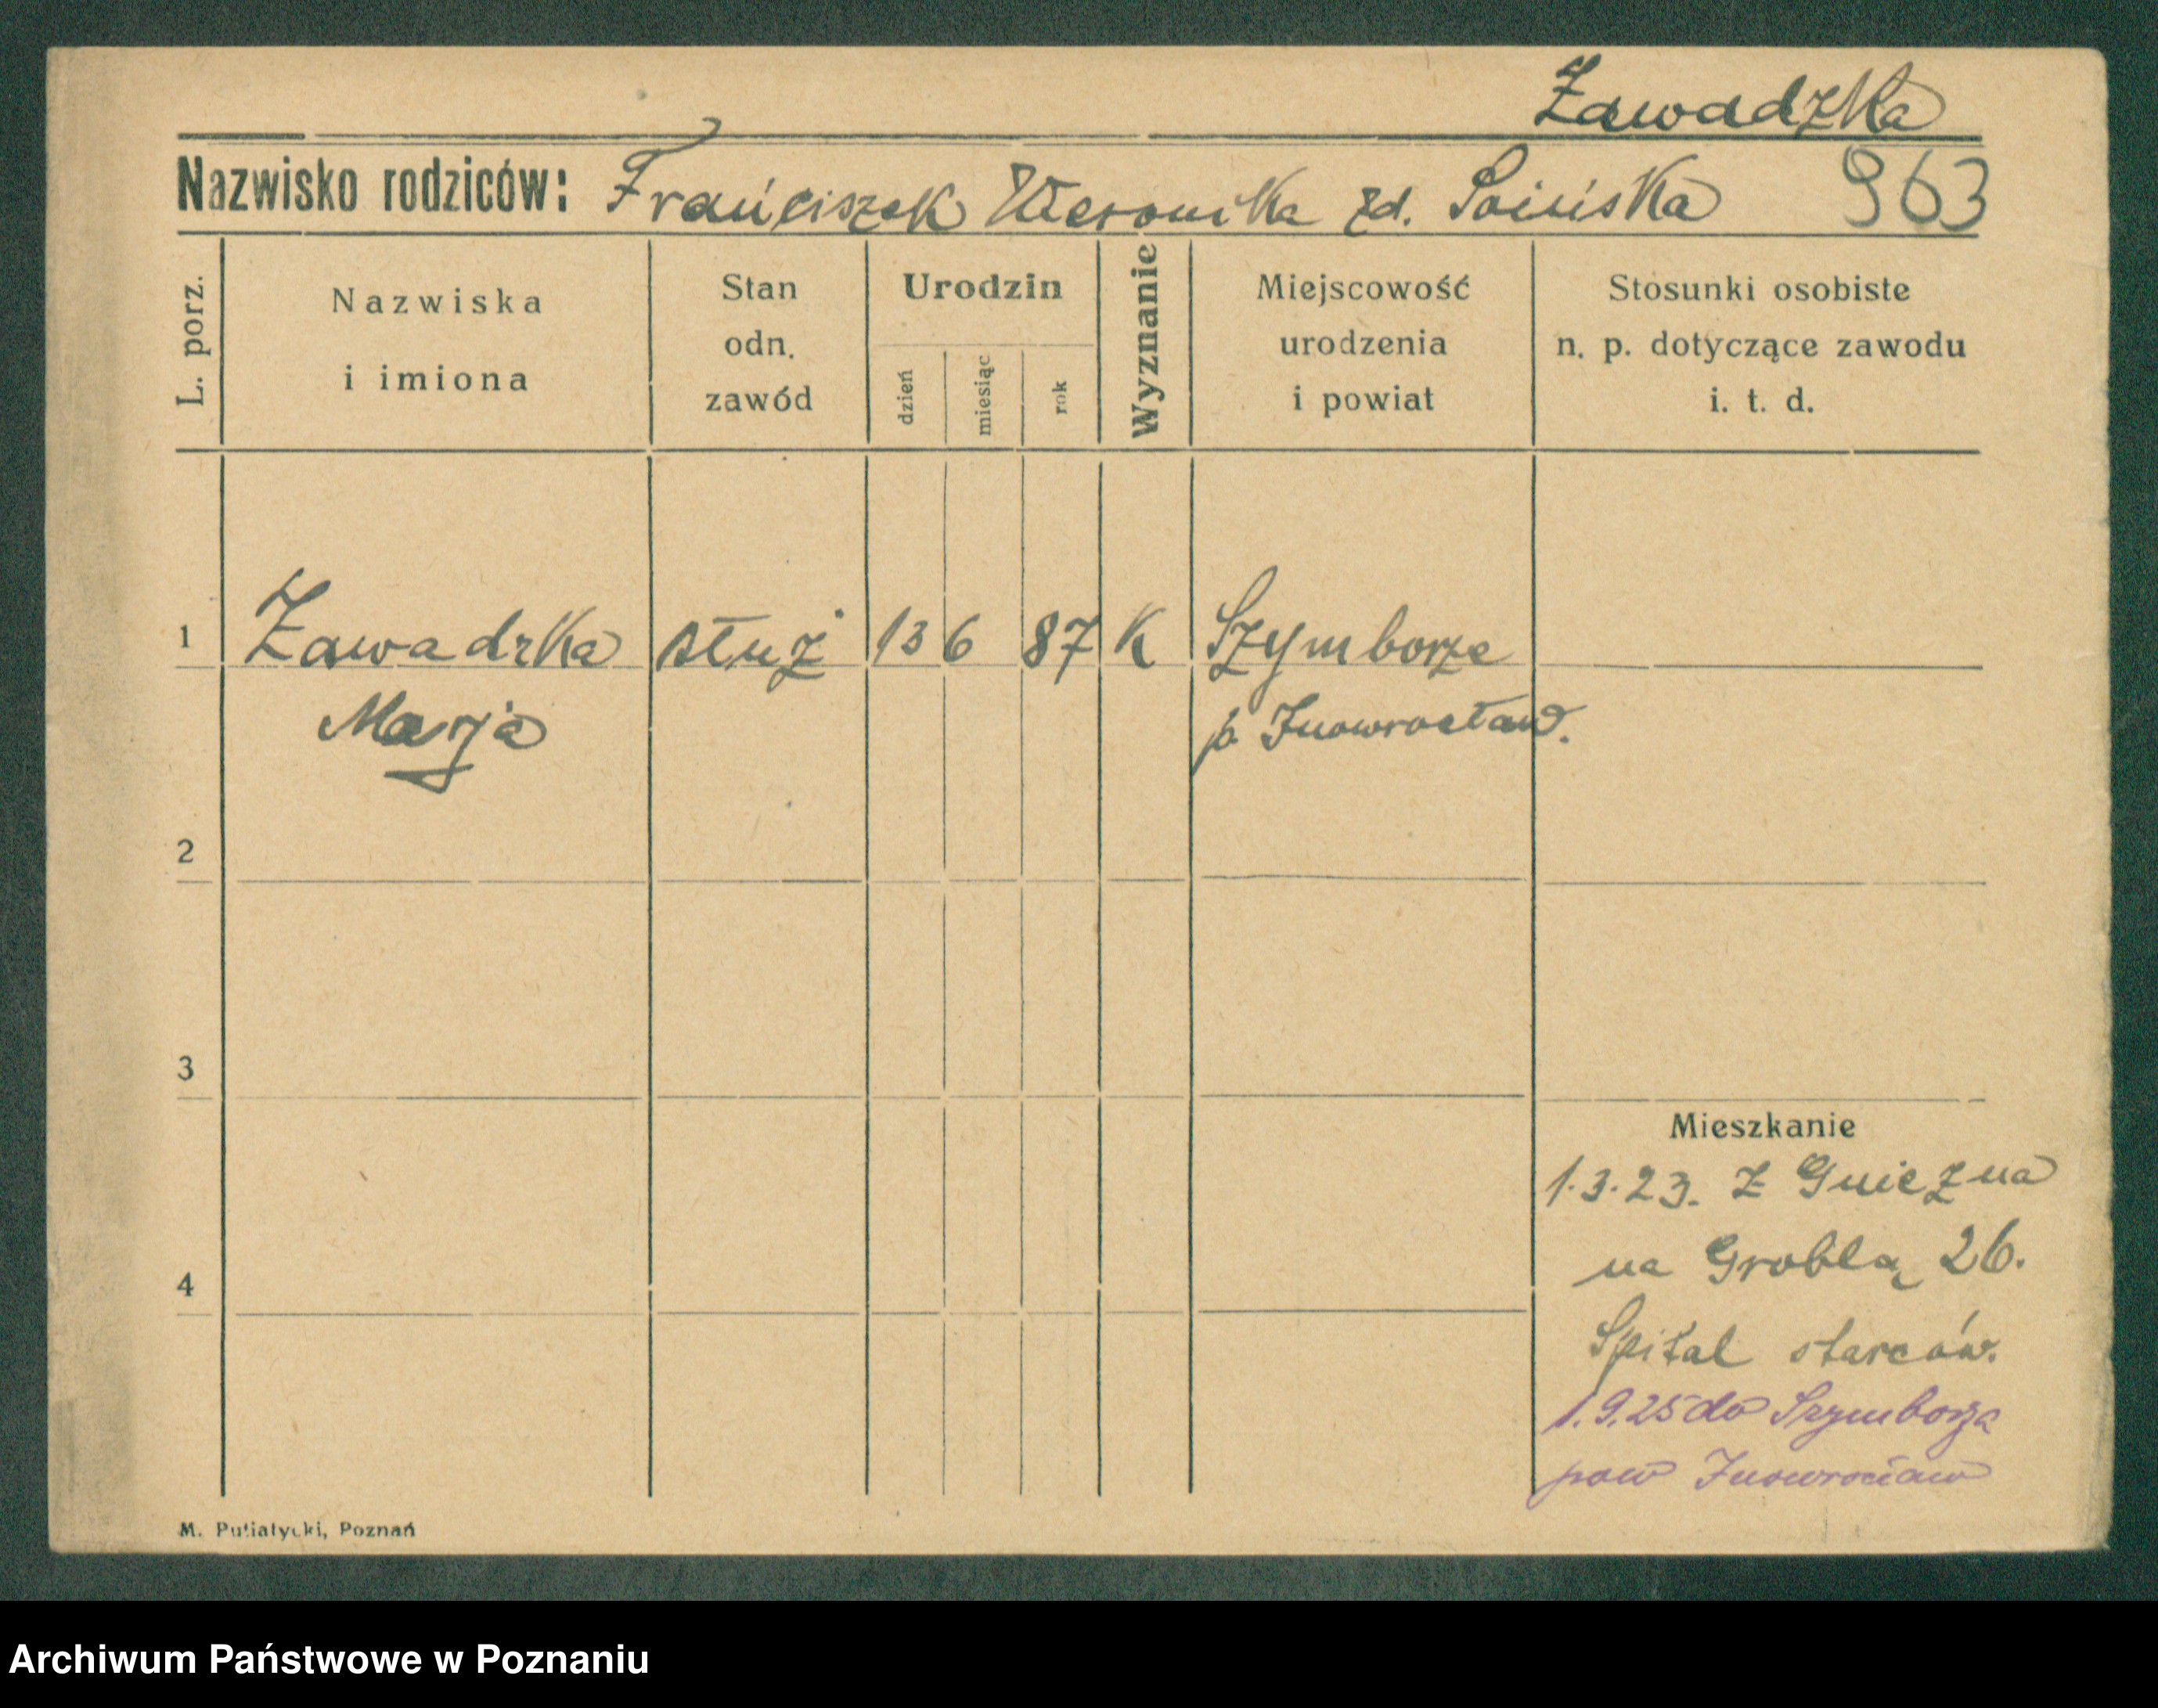 Zawadzka
Nazwisko rodziców: Franciszek Weronika zd. 963
L. porz.
Nazwiska i imiona
Stan odn. zawód
Urodzin
dzień
miesiąc
rok
Wyznanie
Miejscowość urodzenia i powiat
Stosunki osobiste n. p. dotyczące zawodu i. t. d.
1 Zawadzka służ 13 6 87 K Szymborze
Marja p Inowrocław.
2
3
Mieszkanie
1.3.23. Z Gniezna
na Groblą 26.
4
Spital starców.
1.9.25 do Szymborza
pow Inowrocław
M. Putiatycki, Poznań
Archiwum Państwowe w Poznaniu